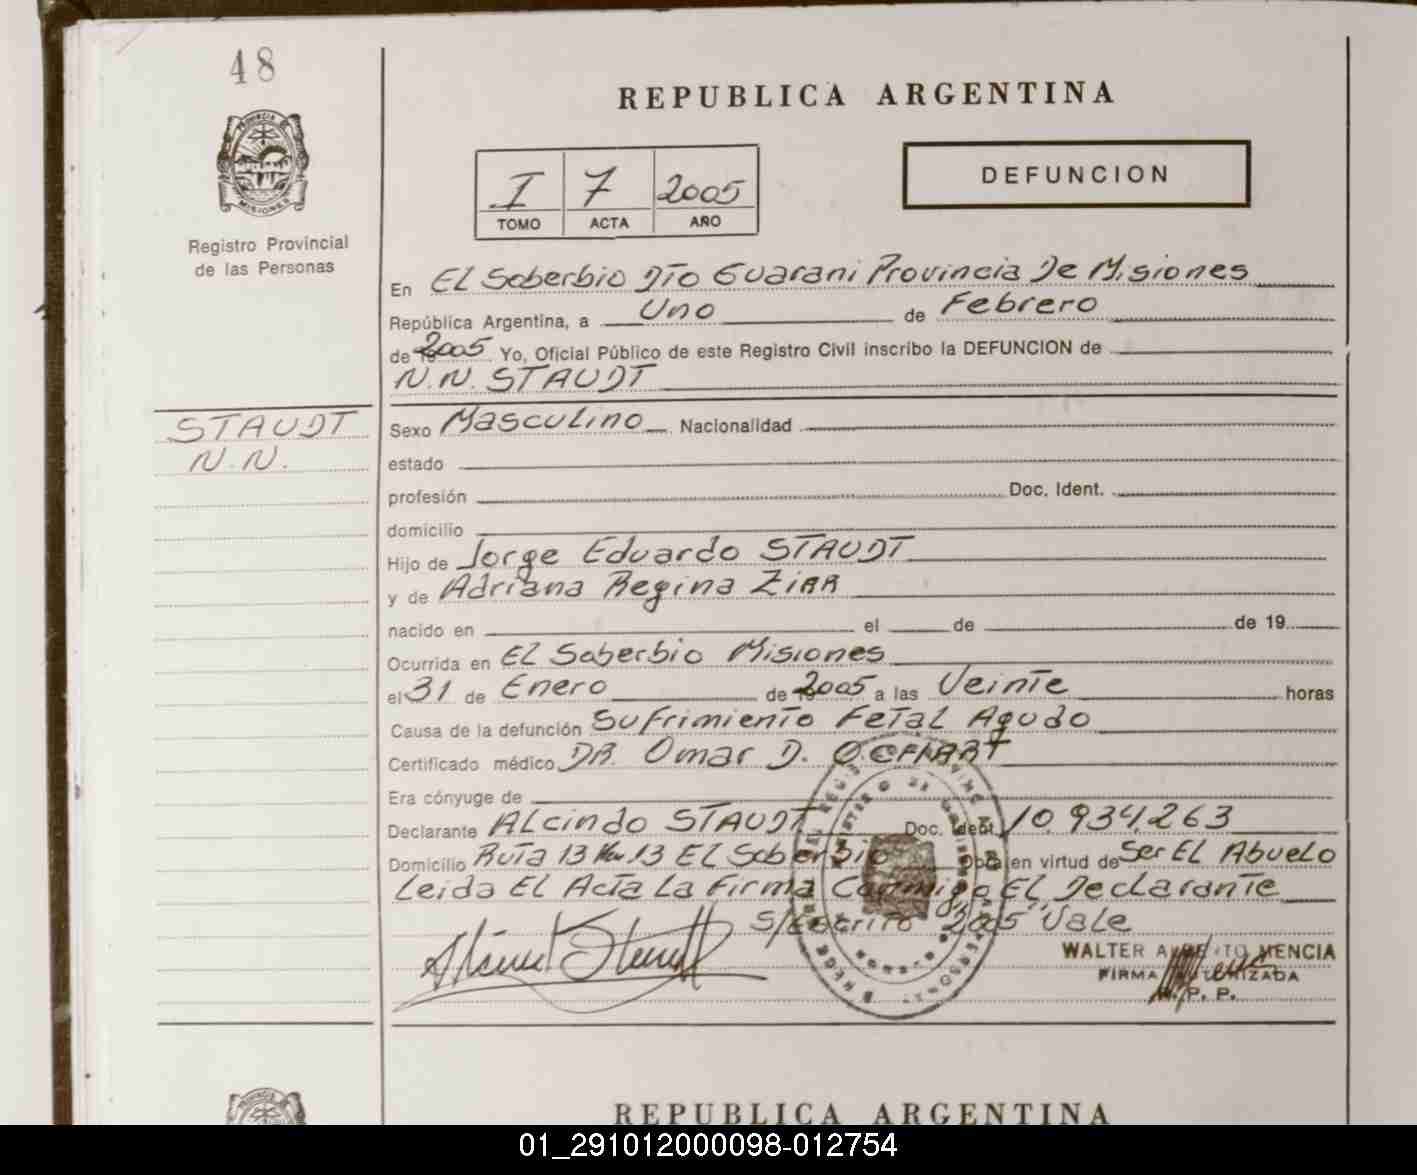 48
REPUBLICA ARGENTINA
PROVINCIA DE
MISIONES
I 7 2005
TOMO ACTA AÑO
DEFUNCION
Registro Provincial
de las Personas
En EL Soberbio DTO Guarani Provincia De Misiones
República Argentina, a Uno de Febrero
de 2005 Yo, Oficial Público de este Registro Civil inscribo la DEFUNCION de
N.N. STAUDT
STAUDT
N.N.
Sexo Masculino Nacionalidad
estado
profesión Doc. Ident.
domicilio
Hijo de Jorge Eduardo STAUDT
y de Adriana Regina ZIRR
nacido en el de de 19
Ocurrida en EL Soberbio Misiones
el 31 de Enero de 2005 a las Veinte horas
Causa de la defunción Sufrimiento Fetal Agudo
Certificado médico DR. Omar D.
Era cónyuge de
Declarante ALcindo STAUDT Doc. Ident. 10.934.263
Domicilio Ruta 13 Km 13 EL Soberbio Obra en virtud de Ser EL Abuelo
Leida EL Acta La Firma Conmigo EL Declarante
S/Escrito "2005" Vale
WALTER MENCIA
FIRMA AUTORIZADA
R. P. P.
REPUBLICA ARGENTINA
01_291012000098-012754